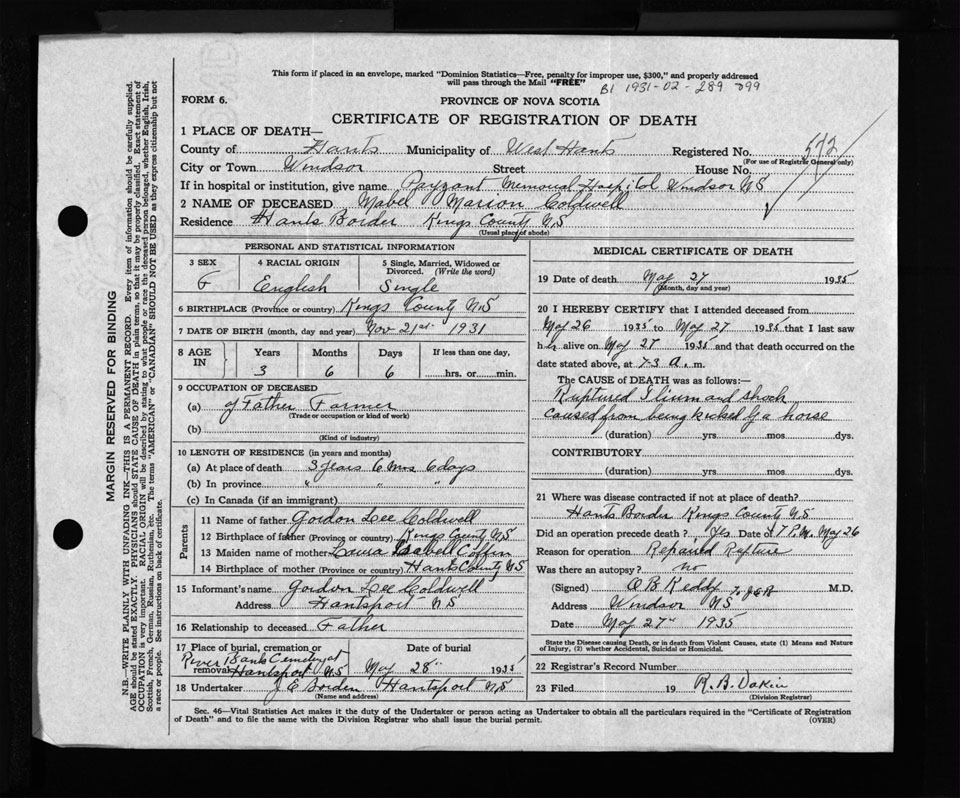 This form if placed in an envelope, marked "Dominion Statistics—Free, penalty for improper use, $300," and properly addressed
will pass through the Mail "FREE"
B1 1931-02-289 099
FORM 6.
PROVINCE OF NOVA SCOTIA
CERTIFICATE OF REGISTRATION OF DEATH
1 PLACE OF DEATH—
County of Hants Municipality of West Hants Registered No. 572
(For use of Registrar General only)
City or Town Windsor Street House No.
If in hospital or institution, give name Payzant Memorial Hospital Windsor NS
2 NAME OF DECEASED Mabel Marion Coldwell
Residence Hants Border Kings County N.S
(Usual place of abode)
PERSONAL AND STATISTICAL INFORMATION
3 SEX 4 RACIAL ORIGIN 5 Single, Married, Widowed or Divorced. (Write the word)
F English Single
6 BIRTHPLACE (Province or country) Kings County N.S
7 DATE OF BIRTH (month, day and year) Nov 21st 1931
8 AGE IN Years Months Days If less than one day,
3 6 6 hrs. or min.
9 OCCUPATION OF DECEASED
(a) of Father Farmer
(Trade or occupation or kind of work)
(b)
(Kind of industry)
10 LENGTH OF RESIDENCE (in years and months)
(a) At place of death 3 years 6 Mos 6 days
(b) In province " " "
(c) In Canada (if an immigrant)
Parents
11 Name of father Gordon Lee Coldwell
12 Birthplace of father (Province or country) Kings County N.S
13 Maiden name of mother Laura Isabell Coffin
14 Birthplace of mother (Province or country) Hants County N.S
15 Informant's name Gordon Lee Coldwell
Address Hantsport NS
16 Relationship to deceased Father
17 Place of burial, cremation or removal Date of burial
River Bank Cemetery at
Hantsport N.S May 28" 1935
18 Undertaker J E Borden Hantsport N.S
(Name and address)
MEDICAL CERTIFICATE OF DEATH
19 Date of death May 27 1935
(Month, day and year)
20 I HEREBY CERTIFY that I attended deceased from
May 26 1935 to May 27 1935 that I last saw
her alive on May 27 1935 and that death occurred on the
date stated above, at 7.3 a. m.
The CAUSE of DEATH was as follows:—
Ruptured Ilium and Shock
caused from being kicked by a horse
(duration) yrs. mos. dys.
CONTRIBUTORY
(duration) yrs. mos. dys.
21 Where was disease contracted if not at place of death?
Hants Border Kings County N.S
Did an operation precede death? Yes. Date of 7 P.M. May 26
Reason for operation Repaired Rupture
Was there an autopsy? no
(Signed) O B Keddy M.D.
Address Windsor NS
Date May 27" 1935
State the Disease causing Death, or in death from Violent Causes, state (1) Means and Nature
of Injury, (2) whether Accidental, Suicidal or Homicidal.
22 Registrar's Record Number
23 Filed 19 R. B. Dakin
(Division Registrar)
Sec. 46—Vital Statistics Act makes it the duty of the Undertaker or person acting as Undertaker to obtain all the particulars required in the "Certificate of Registration
of Death" and to file the same with the Division Registrar who shall issue the burial permit.
(OVER)
MARGIN RESERVED FOR BINDING
N.B.—WRITE PLAINLY WITH UNFADING INK—THIS IS A PERMANENT RECORD. Every item of information should be carefully supplied.
AGE should be stated EXACTLY. PHYSICIANS should STATE CAUSE OF DEATH in plain terms, so that it may be properly classified. Exact statement of
OCCUPATION is very important. RACIAL ORIGIN will be described by stating to what people or race the deceased person belonged, whether English, Irish,
Scottish, French, German, Russian, Ruthenian, etc. The terms "AMERICAN" or "CANADIAN" SHOULD NOT BE USED as they express citizenship but not
a race or people. See instructions on back of certificate.